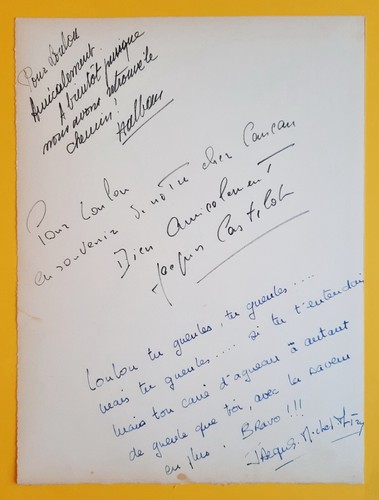 Pour Loulou
Amicalement.
A bientôt puisque
nous avons retrouvé le
chemin!
Pour Loulou
en souvenir de notre cher Cancan
Bien Amicalement
Jacques Castelot
Loulou tu gueules, tu gueules....
mais tu gueules.... si tu t'entendais
Mais ton carré d'agneau à autant
de gueule que toi, avec la saveur
en plus. Bravo!!!